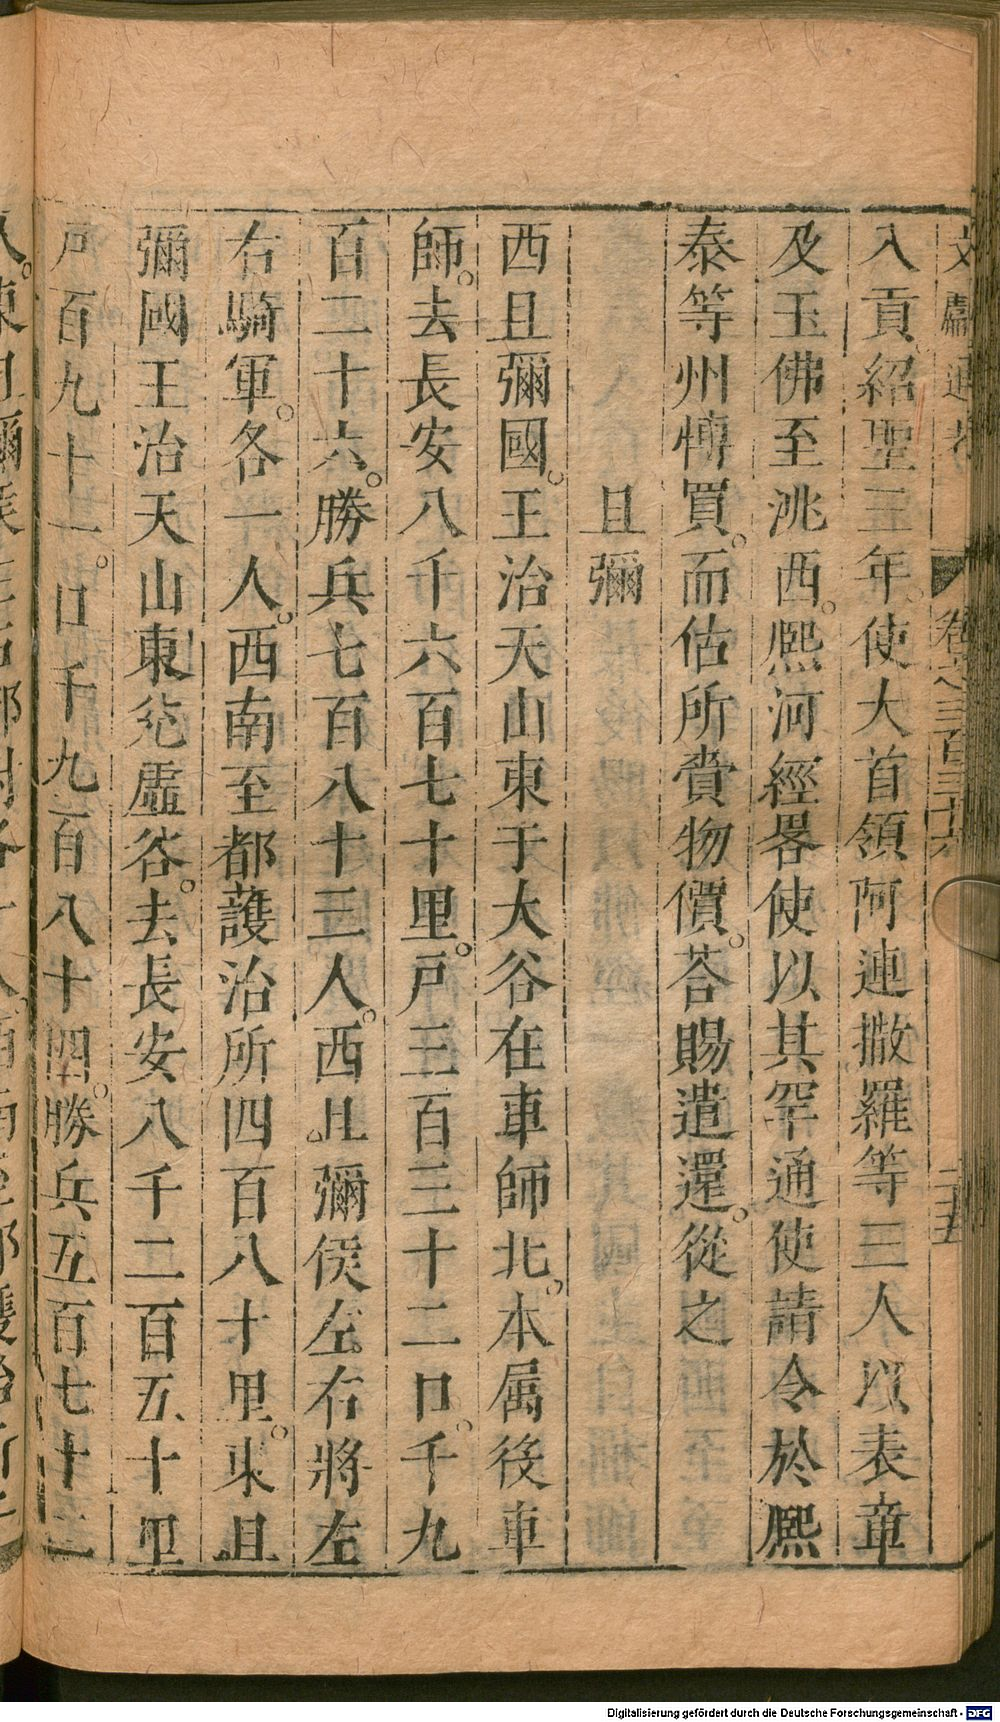 文獻通考 卷之三百三十六 二十五
入貢紹聖三年使大首領阿連撒羅等三人以表章
及玉佛至洮西。熈河經畧使以其罕通使請令於熈
泰等州博買。而估所賫物價。荅賜遣還。從之
且彌
西且彌國。王治天山東于大谷在車師北。本属後車
師。去長安八千六百七十里。戸三百三十二口。千九
百二十六。勝兵七百八十三人。西且彌侯左右將左
右騎軍。各一人。西南至都護治所四百八十里。東且
彌國王治天山東兊虛谷。去長安八千二百五十里
戸百九十一。口千九百八十四。勝兵五百七十二
Digitalisierung gefördert durch die Deutsche Forschungsgemeinschaft - DFG